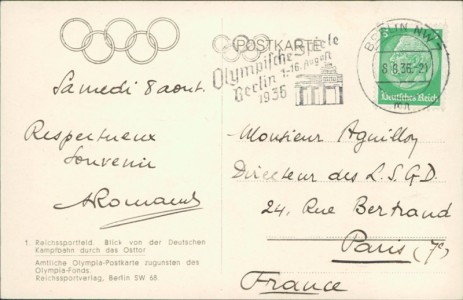 POSTKARTE
Olympische Spiele
Berlin 1.-16. August
1936
BERLIN NW7
8.8.36.-21
Deutsches Reich
Samedi 8 aout.
Respectueux
Souvenir
ARomand
Monsieur Aguillon
Directeur des L.S.G.D.
24, Rue Bertrand
Paris (7e)
France
1. Reichssportfeld. Blick von der Deutschen
Kampfbahn durch das Osttor
Amtliche Olympia-Postkarte zugunsten des
Olympia-Fonds.
Reichssportverlag, Berlin SW 68.